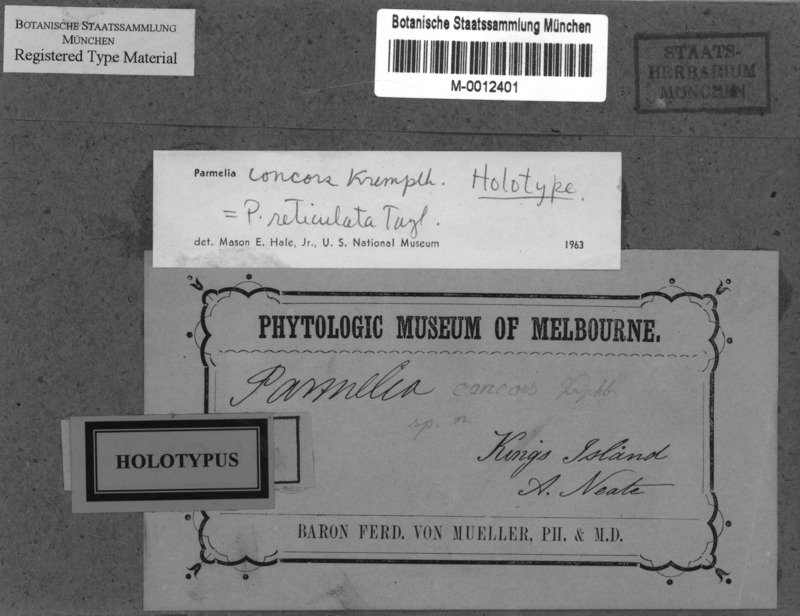 BOTANISCHE STAATSSAMMLUNG
MÜNCHEN
Registered Type Material
Botanische Staatssammlung München
M-0012401
STAATS-
HERBARIUM
MÜNCHEN
Parmelia concors Krempelh. Holotype.
= P. reticulata Tayl.
det. Mason E. Hale, Jr., U. S. National Museum 1963
PHYTOLOGIC MUSEUM OF MELBOURNE.
Parmelia concors Krphb.
sp. n.
Kings Island
A. Neate
HOLOTYPUS
BARON FERD. VON MUELLER, PH. & M.D.